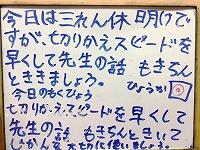 今日は三れん休明けで
すが、切りかえスピードを
早くして先生の話もきちん
とききましょう。
ひょうか
今日のもくひょう
切りかえスピードを早くして
先生の話もきちんときいて
じかんを大切に使いましょう。